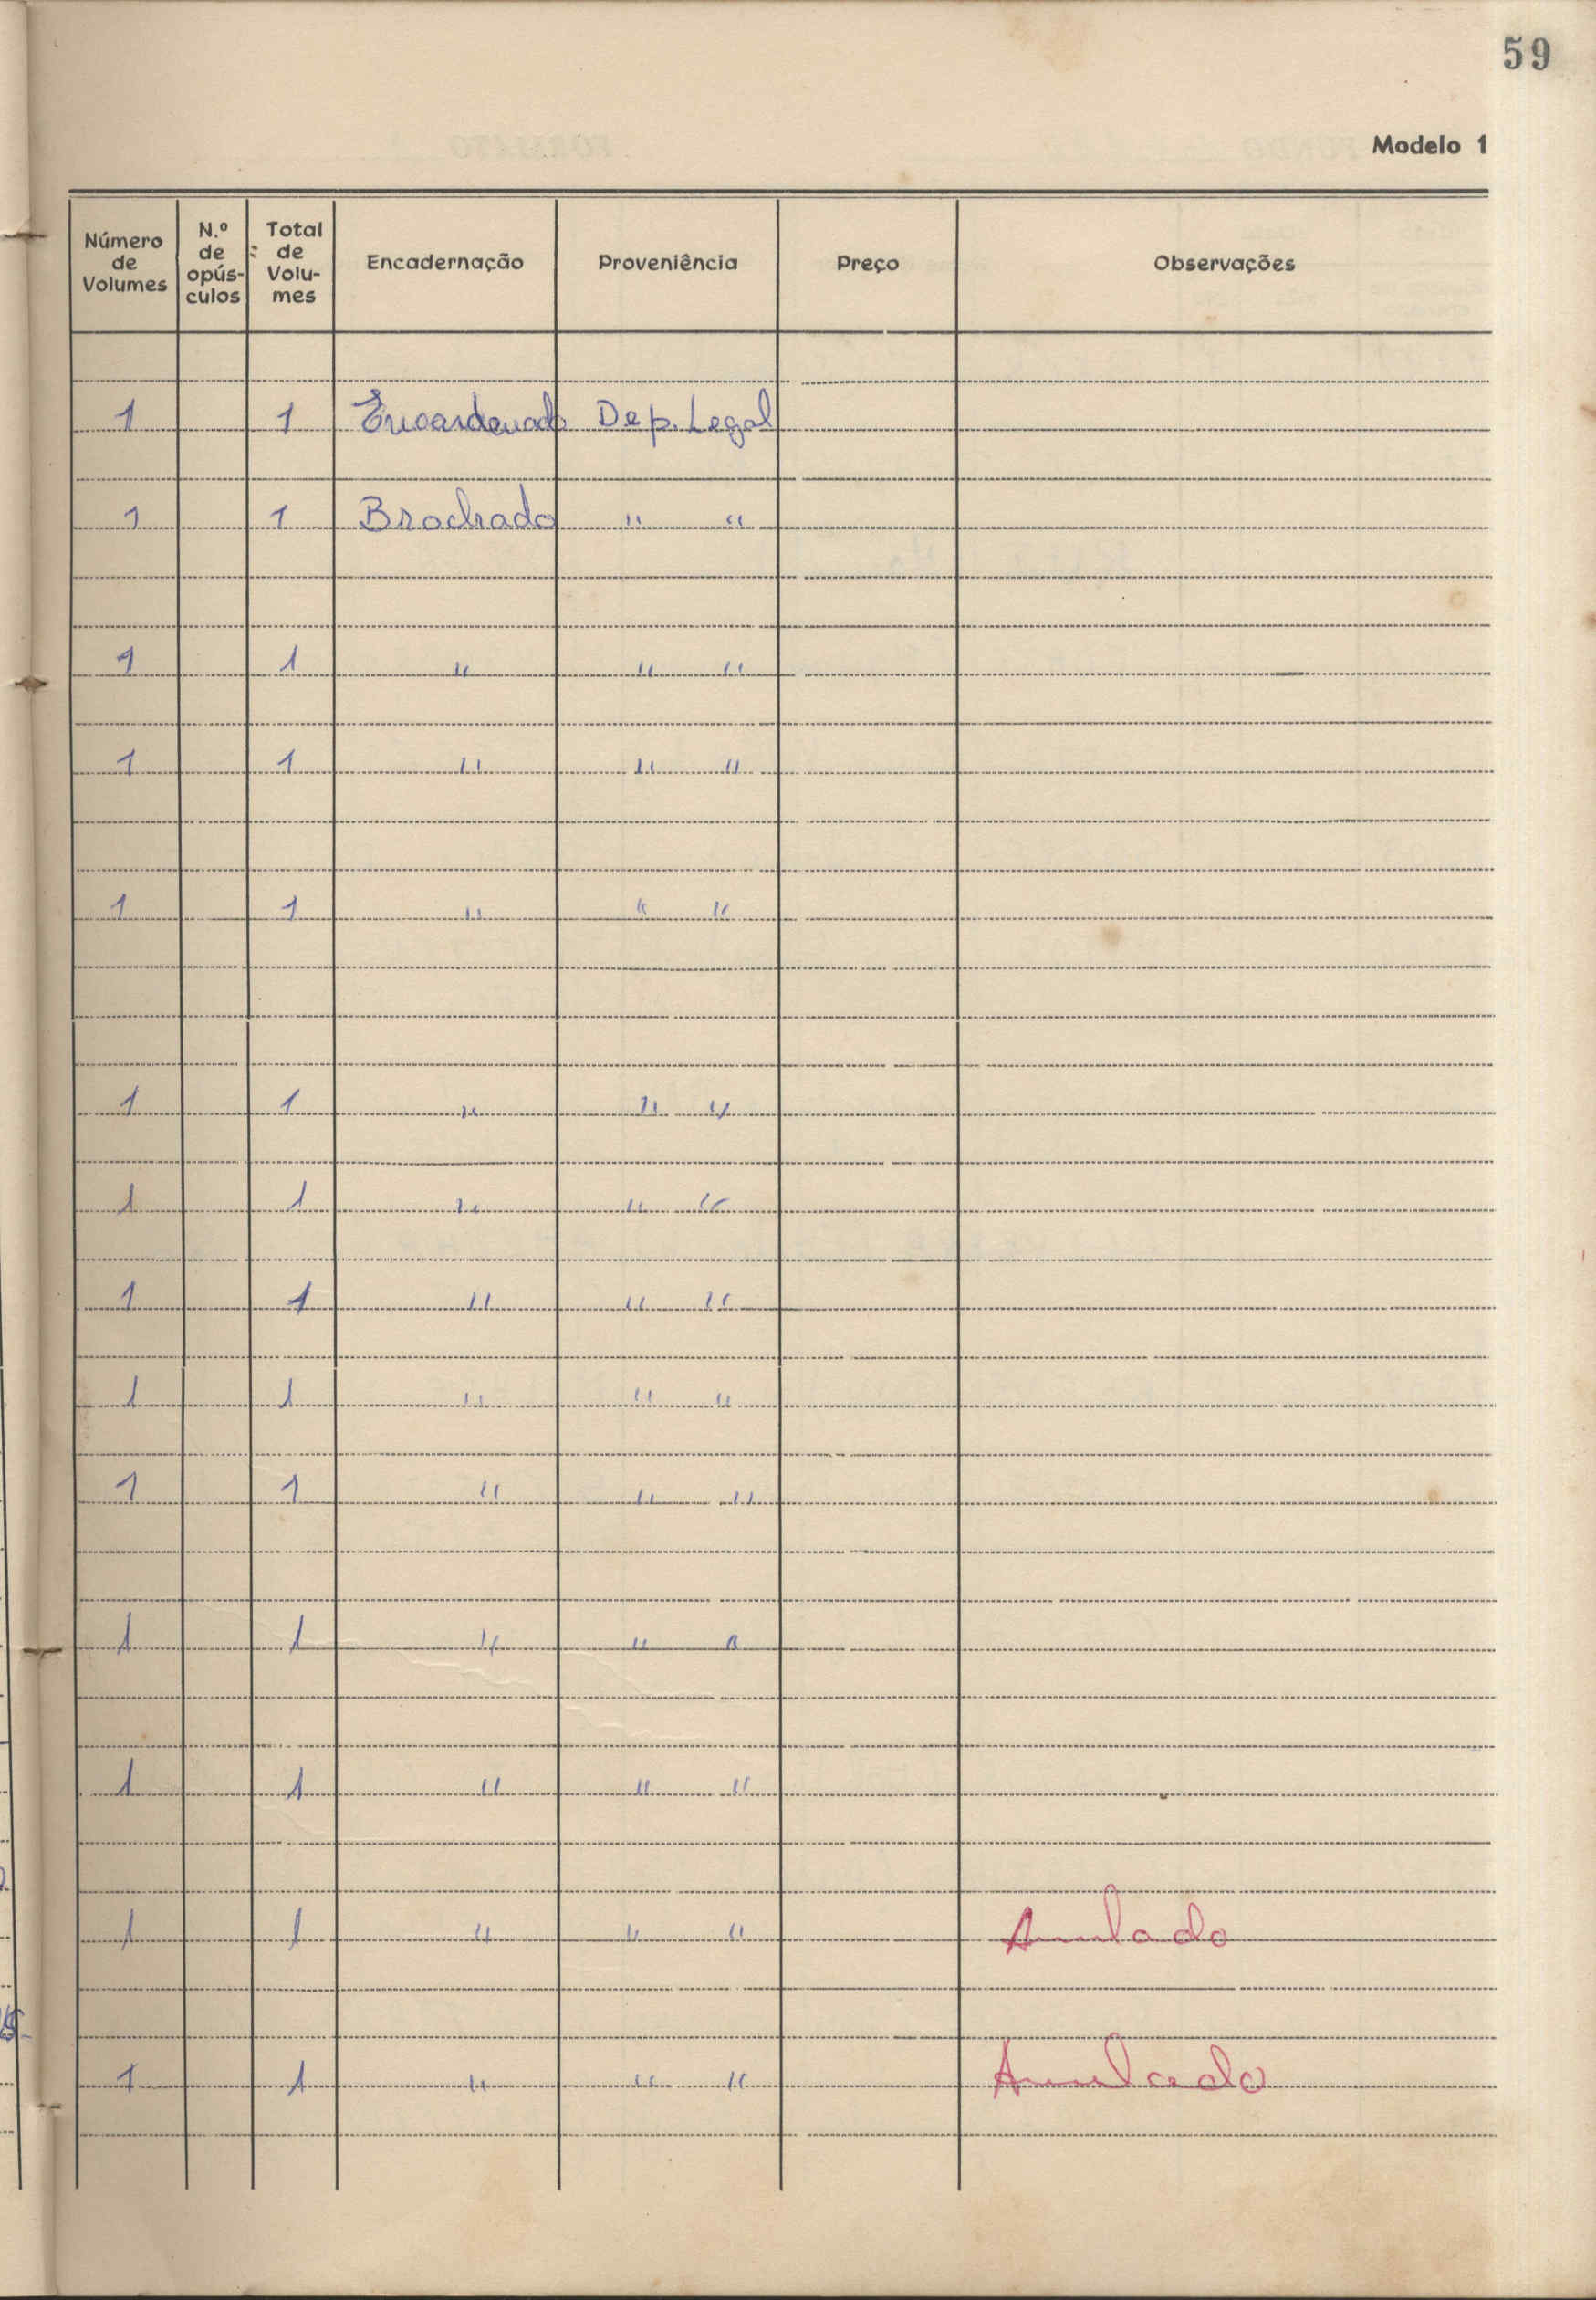 59
Modelo 1
Número de Volumes | N.º de opús-culos | Total de Volu-mes | Encadernação | Proveniência | Preço | Observações
1 1 Encardenado Dep. Legal
1 1 Brochado " "
1 1 " " "
1 1 " " "
1 1 " " "
1 1 " " "
1 1 " " "
1 1 " " "
1 1 " " "
1 1 " " "
1 1 " " "
1 1 " " "
1 1 " " " Anulado
1 1 " " " Anulado